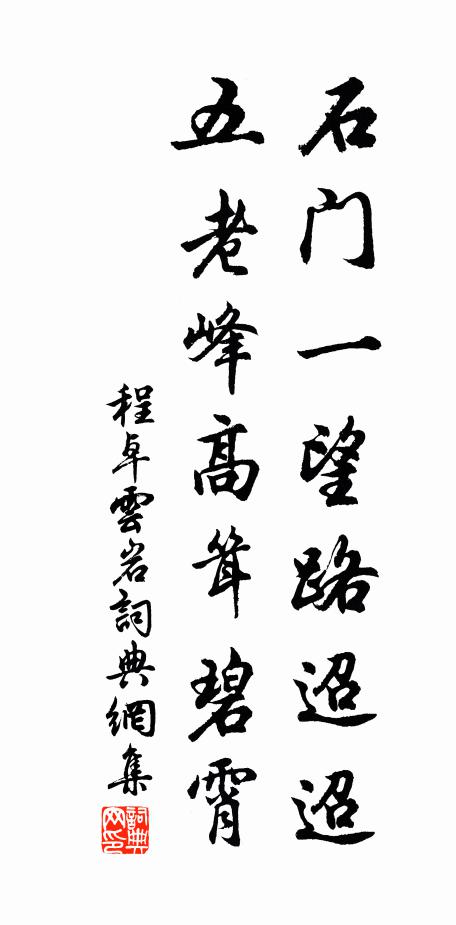 石门一望路迢迢
五老峰高耸碧霄
程卓雲岩詞典網集
詞典网印